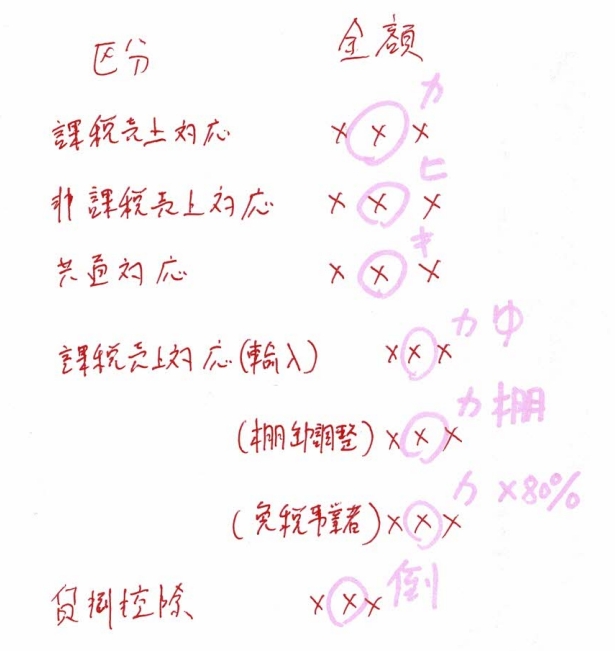 区分 金額
課税売上対応 ××× カ
非課税売上対応 ××× ヒ
共通対応 ××× キ
課税売上対応(輸入) ××× カ ゆ
(棚卸調整) ××× カ 棚
(免税事業者) ××× カ ×80%
貸倒控除 ××× 倒